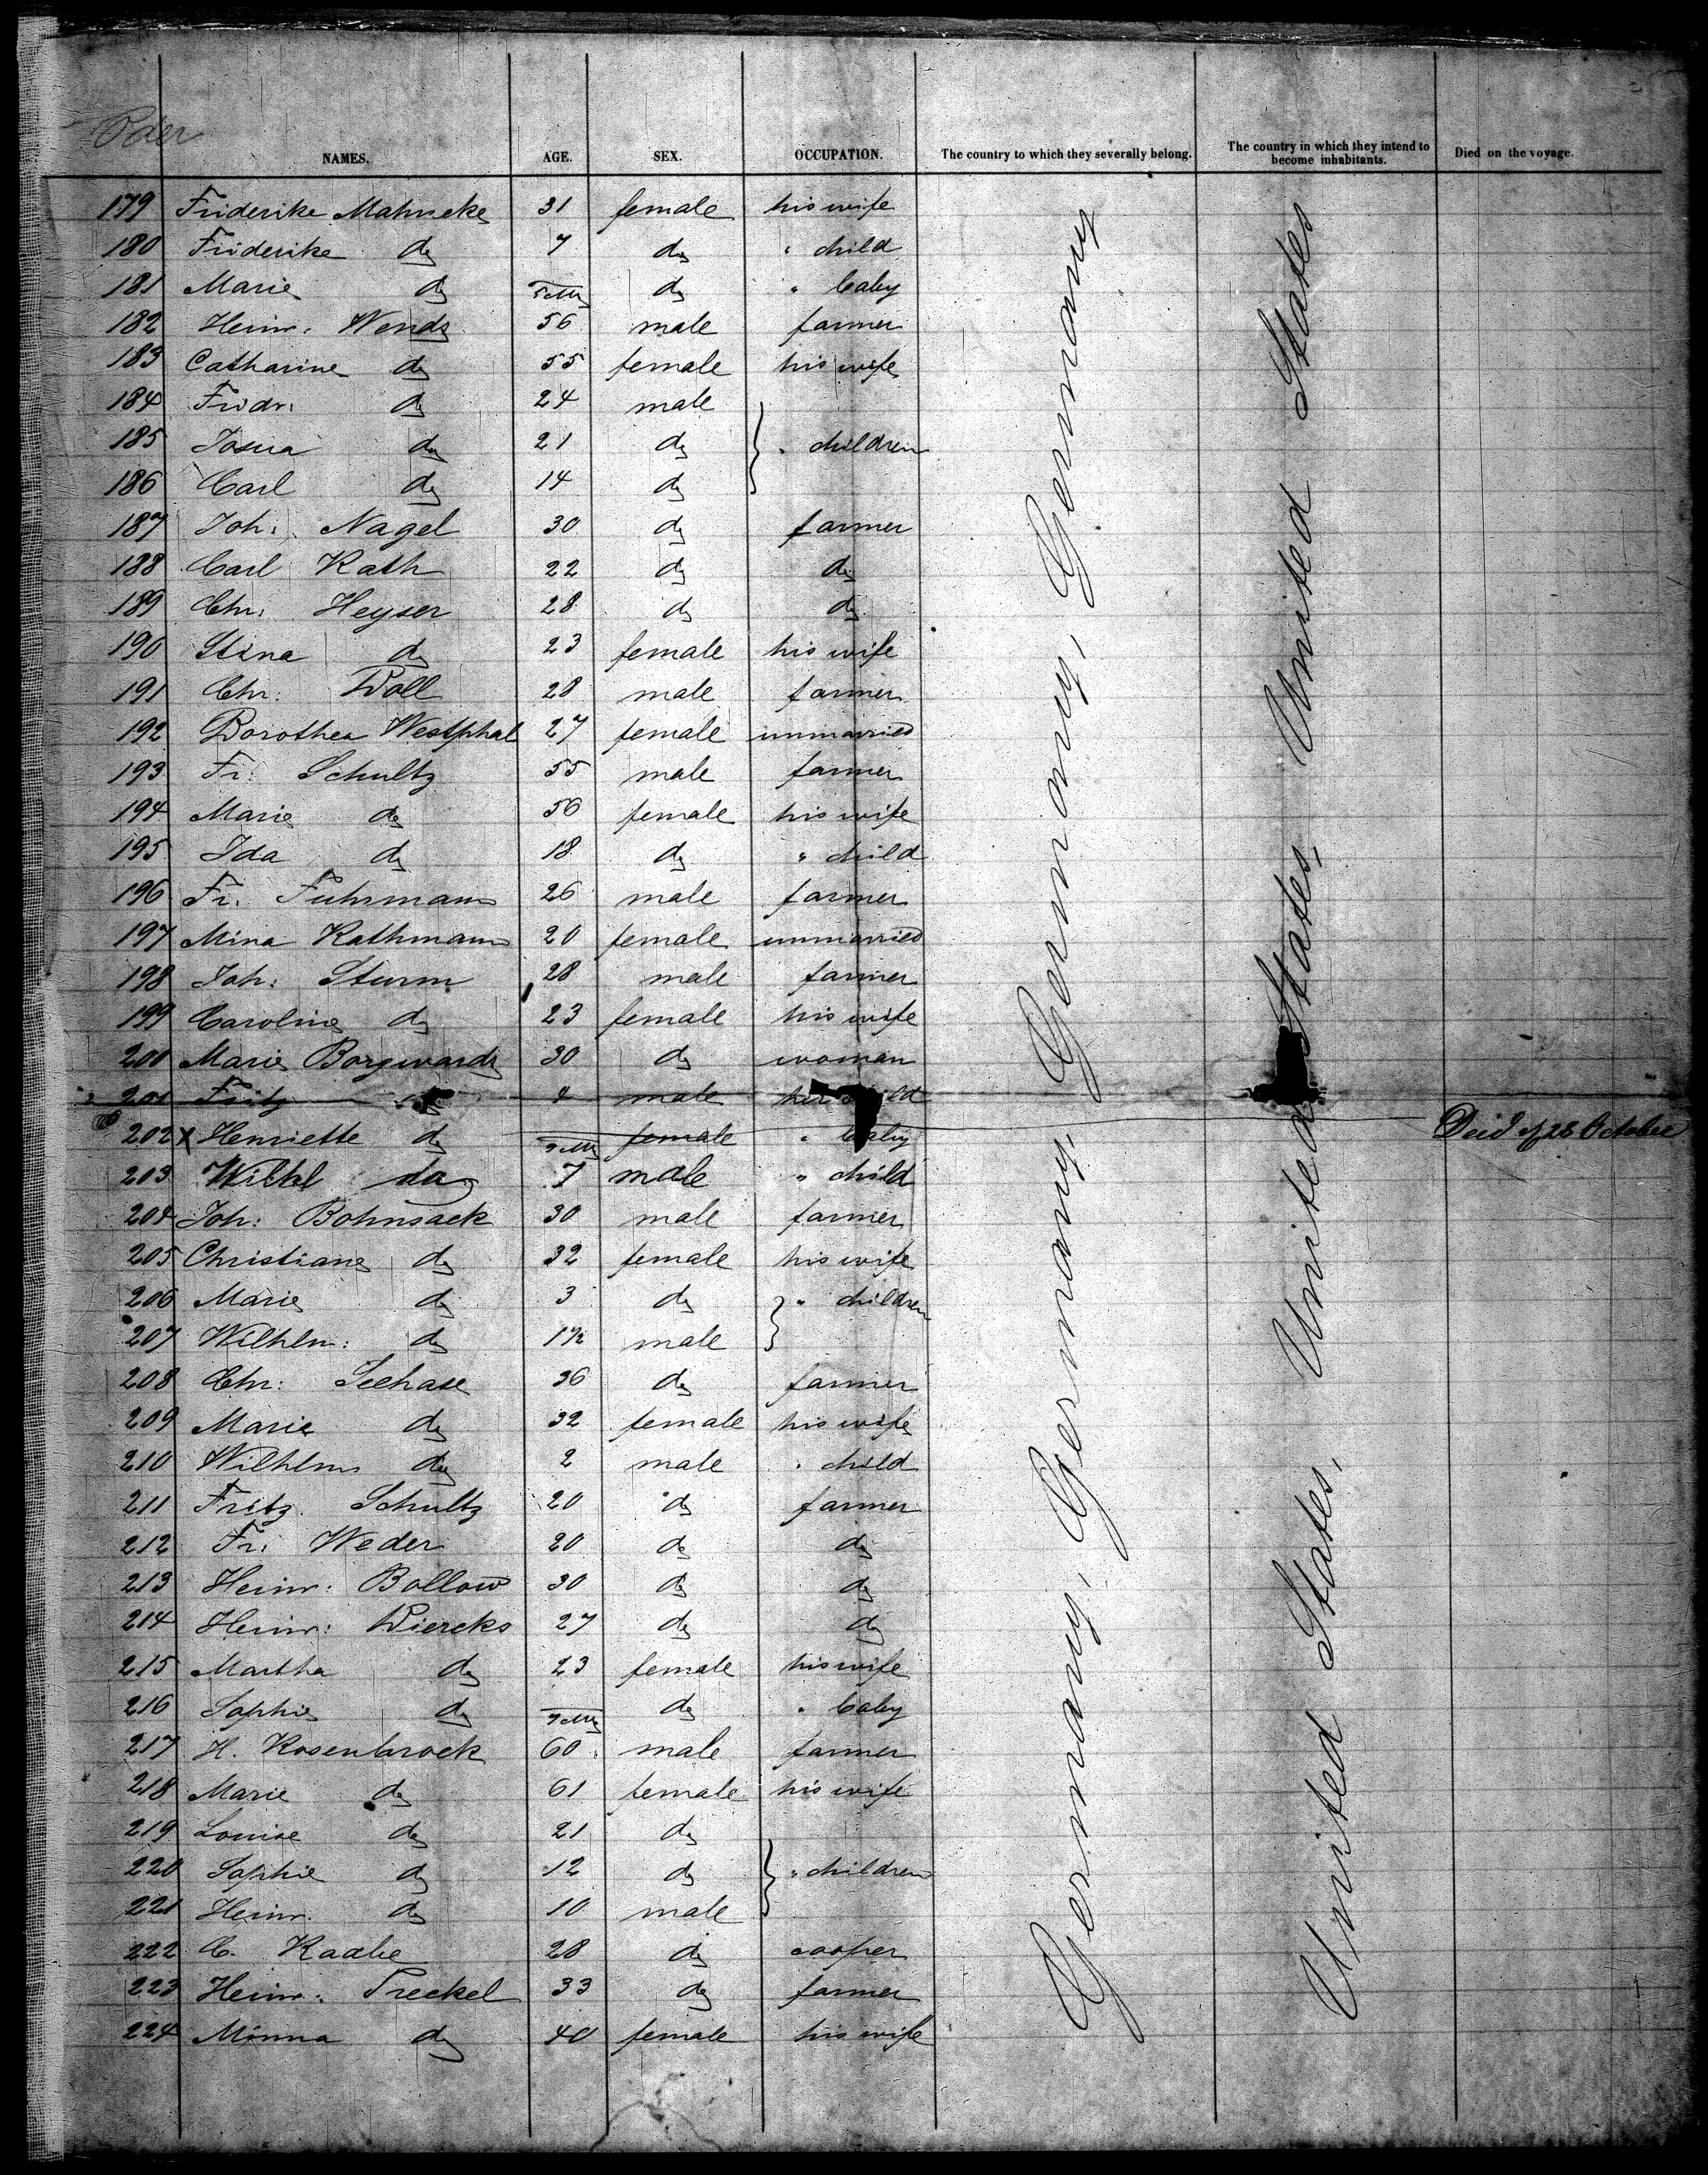 Oder
NAMES. AGE. SEX. OCCUPATION. The country to which they severally belong. The country in which they intend to become inhabitants. Died on the voyage.
179 Friderike Mahncke 31 female his wife
180 Friderike do 7 do " child
181 Marie do do " baby
182 Heinr. Wends 56 male farmer
183 Catharine do 55 female his wife
184 Fridr. do 24 male
185 Josua do 21 do " children
186 Carl do 14 do
187 Joh: Nagel 30 do farmer
188 Carl Kath 22 do do
189 Chr: Heyser 28 do do
190 Stina do 23 female his wife
191 Chr: Woll 28 male farmer
192 Dorothea Westphal 27 female unmarried
193 Fr: Schultz 55 male farmer
194 Marie do 56 female his wife
195 Ida do 18 do " child
196 Fr. Fuhrmann 26 male farmer
197 Mina Kathmann 20 female unmarried
198 Joh: Sturm 28 male farmer
199 Caroline do 23 female his wife
200 Marie Borgwardt 30 do woman
201 Fritz 4 male her
202 x Henriette do female " baby Deid of 28 October
203 Wilhl do 7 male " child
204 Joh: Bohnsack 30 male farmer
205 Christiane do 32 female his wife
206 Marie do 3 do " children
207 Wilhlm: do 1½ male
208 Chr: Seehase 36 do farmer
209 Marie do 32 female his wife
210 Wilhlm do 2 male " child
211 Fritz Schultz 20 do farmer
212 Fr: Weder 20 do do
213 Heinr: Bollow 30 do do
214 Heinr: Diercks 27 do do
215 Martha do 23 female his wife
216 Sophie do do " baby
217 H. Rosenbrock 60 male farmer
218 Marie do 61 female his wife
219 Louise do 21 do
220 Sophie do 12 do " children
221 Heinr. do 10 male
222 C. Raabe 28 do cooper
223 Heinr: Preckel 33 do farmer
224 Minna do 40 female his wife
Germany, Germany, Germany, Germany, Germany
United States, United States, United States, United States